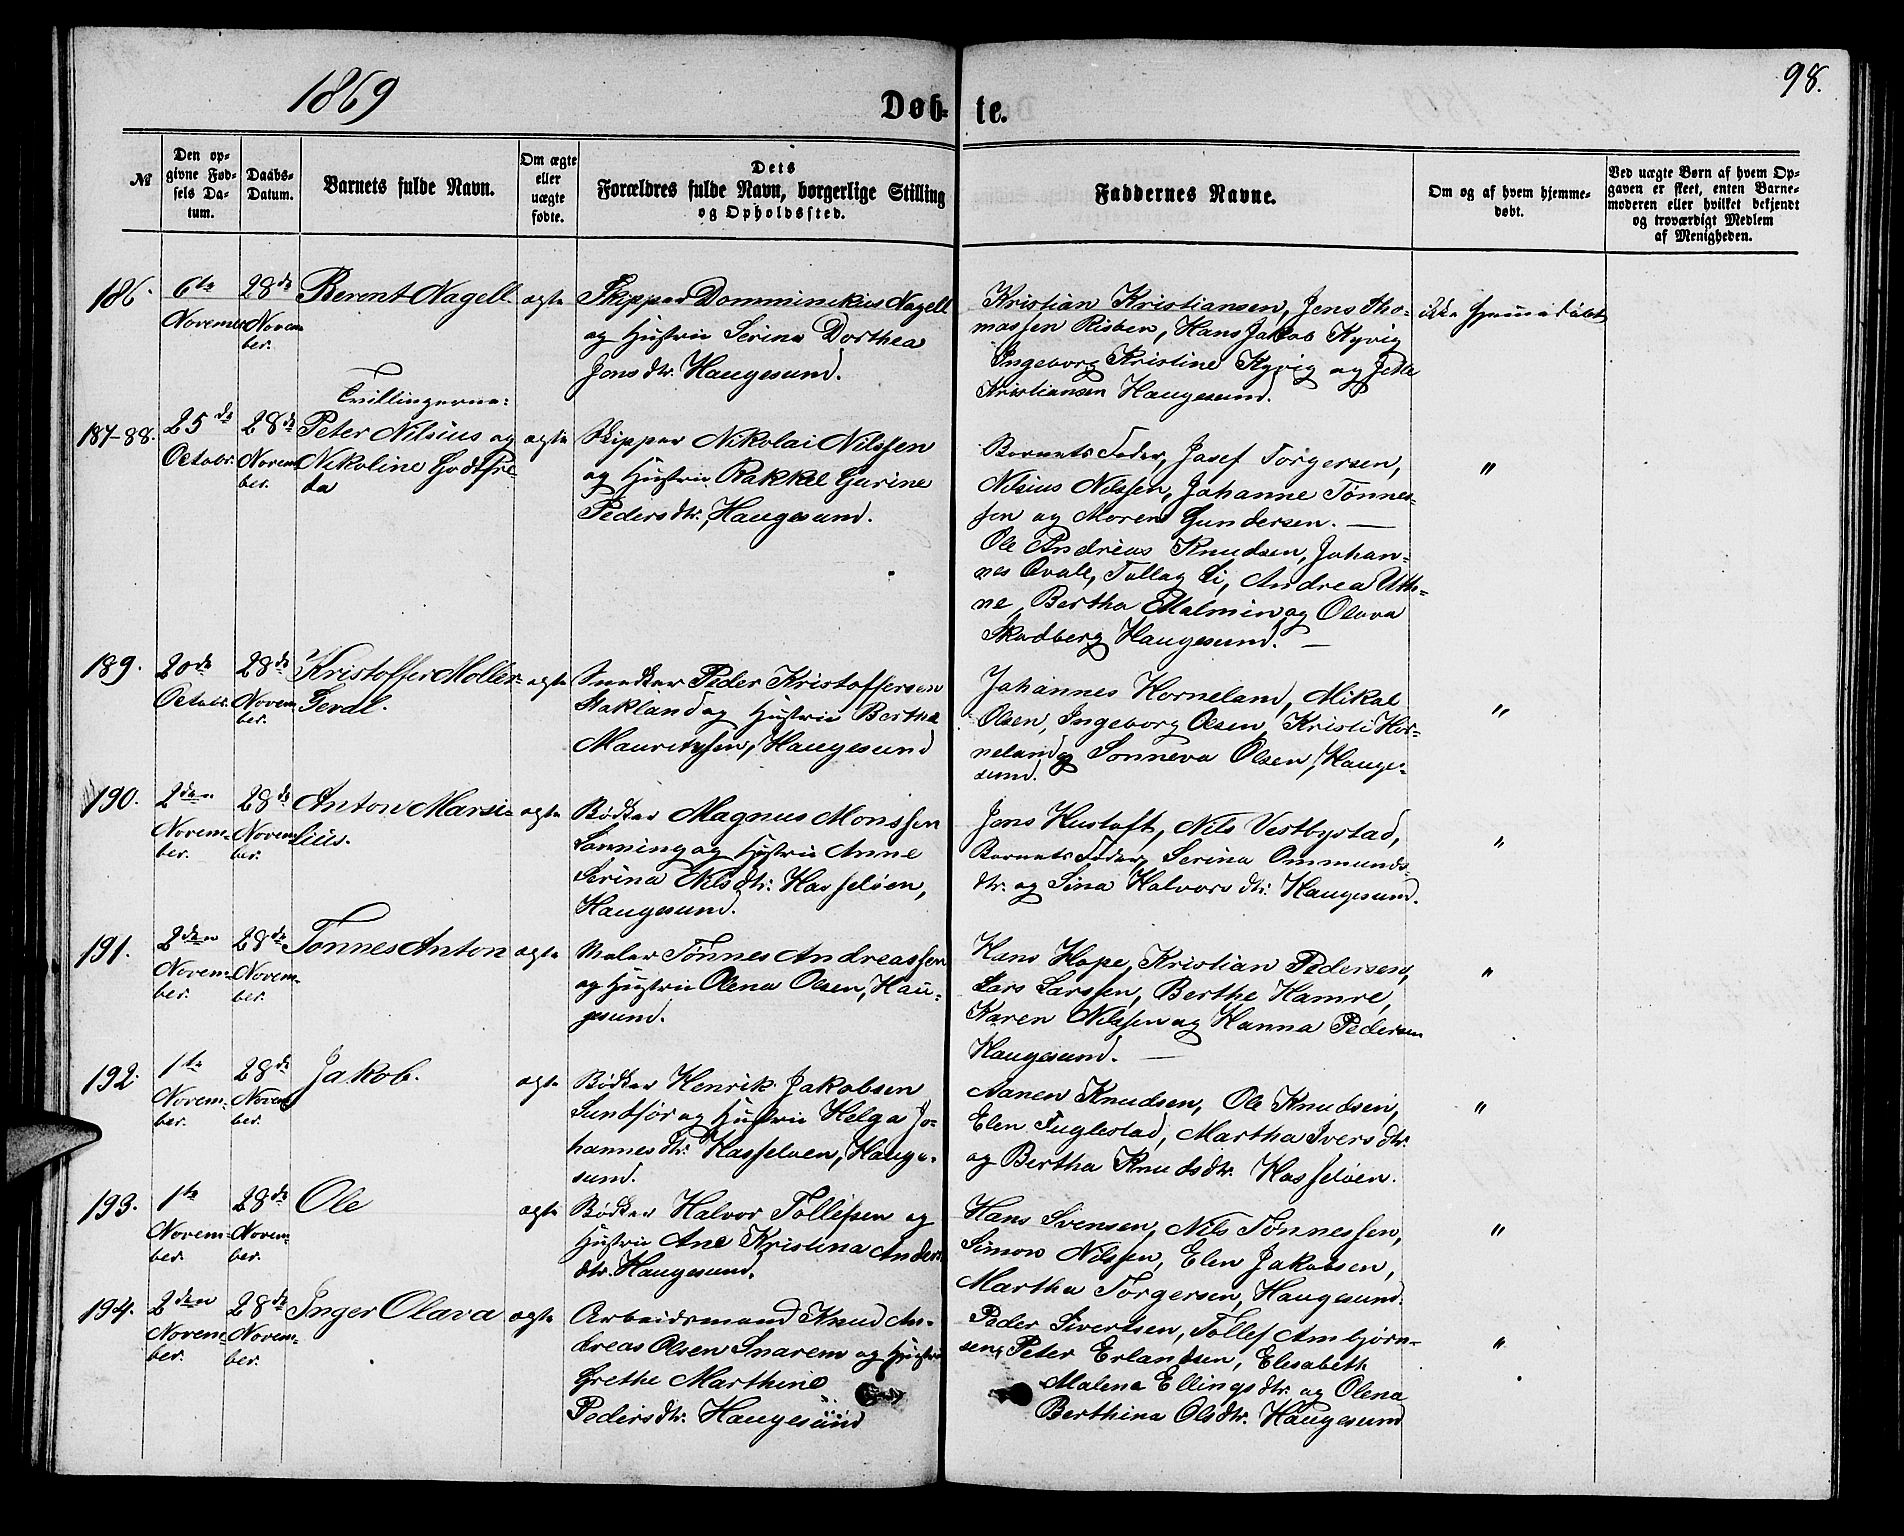 1869
98.
Døb- te.
№
Den op-
givne Fød-
sels Da-
tum.
Daabs-
Datum.
Barnets fulde Navn.
Om ægte
eller
uægte
fødte.
Dets
Forældres fulde Navn, borgerlige Stilling
og Opholdssted.
Faddernes Navne.
Om og af hvem hjemme-
døbt.
Ved uægte Børn af hvem Op-
gaven er skeet, enten Barne-
moderen eller hvilket bekjendt
og troværdigt Medlem
af Menigheden.
186.
6te
November
28de
Novem
ber.
Berent Nagell
ægte
Skipper Domminikus Nagell
og Hustru Serina Dorthea
Jonsdtr. Haugesund.
Kristian Kristiansen, Jens Tho-
massen Risben, Hans Jakob Kyvig
Ingeborg Kristine Kyvig og
Kristiansen Haugesund.
ikke hjemmedøbt
187-88.
25de
Octobr.
28de
Novem
ber.
Tvillingerne:
Peter Nilsius og
Nikoline Godtfre-
da
ægte
Skipper Nikolai Nilssen
og Hustru Rakkel Gurine
Pedersdtr. Haugesund.
Barnets Fader, Josef Torgersen,
Nilsius Nilssen, Johanne Tønnes-
sen og Maren Gundersen. —
Ole Andreas Knudsen, Johan-
nes Qvale, Tollag Li, Andrea Uth-
ne, Bertha Malmin og Olava
Skadberg Haugesund. —
"
189.
20de
Octobr.
28de
Novem
ber.
Kristoffer Møller-
Gerdl.
ægte
Snedker Peder Kristoffersen
Stakland og Hustru Bertha
Mauritzsen, Haugesund
Johannes Hornelam, Mikal
Olsen, Ingeborg Olsen, Kristi Hor-
neland og Sønneva Olsen, Hauge-
sund.
"
190.
2den
Novem-
ber.
28de
Novem
ber.
Anton Marsi-
lius.
ægte
Bødker Magnus Monssen
Lønning og Hustru Anne
Serina Nilsdtr. Hasseløen,
Haugesund.
Jens Hustoft, Nils Vestbystad,
Barnets Fader, Serina Ommunds-
dtr. og Sina Halvorsdtr. Haugesund.
"
191.
2den
Novem-
ber.
28de
Novem-
ber.
Tønnes Anton
ægte
Maler Tønnes Andreassen
og Hustru Olena Olsen, Hau-
gesund.
Hans Hope, Kristian Pedersen,
Lars Larssen, Berthe Hamre,
Karen Nilssen og Hanna Pedersen
Haugesund. —
"
192.
1te
Novem-
ber.
28de
Novem
ber.
Jakob.
ægte
Bødker Henrik Jakobsen
Sundfør og Hustru Helga Jo-
hannesdtr. Hasseløen, Hauge-
sund.
Aanen Knudsen, Ole Knudsen,
Elen Fuglestad, Martha Iversdtr.
og Bertha Knudsdtr. Hasseløen.
"
193.
1te
Novem-
ber.
28de
Novem-
ber.
Ole
ægte
Bødker Halvor Tollefsen og
Hustru Ane Kristina Anders
dtr. Haugesund.
Hans Svensen, Nils Tønnessen,
Simon Nilssen, Elen Jakobsen,
Martha Torgersen, Haugesund.
"
194.
2den
Novem-
ber.
28de
Novem-
ber.
Inger Olava
ægte
Arbeidsmand Knud An-
dreas Olsen Snarem og Hustru
Grethe Marthine
Pedersdtr. Haugesund
Peder Sivertsen, Tollef Ambjørn-
sen, Peter Erlandsen, Elesabeth
Malena Ellingsdtr. og Olena
Berthina Olsdtr. Haugesund
"